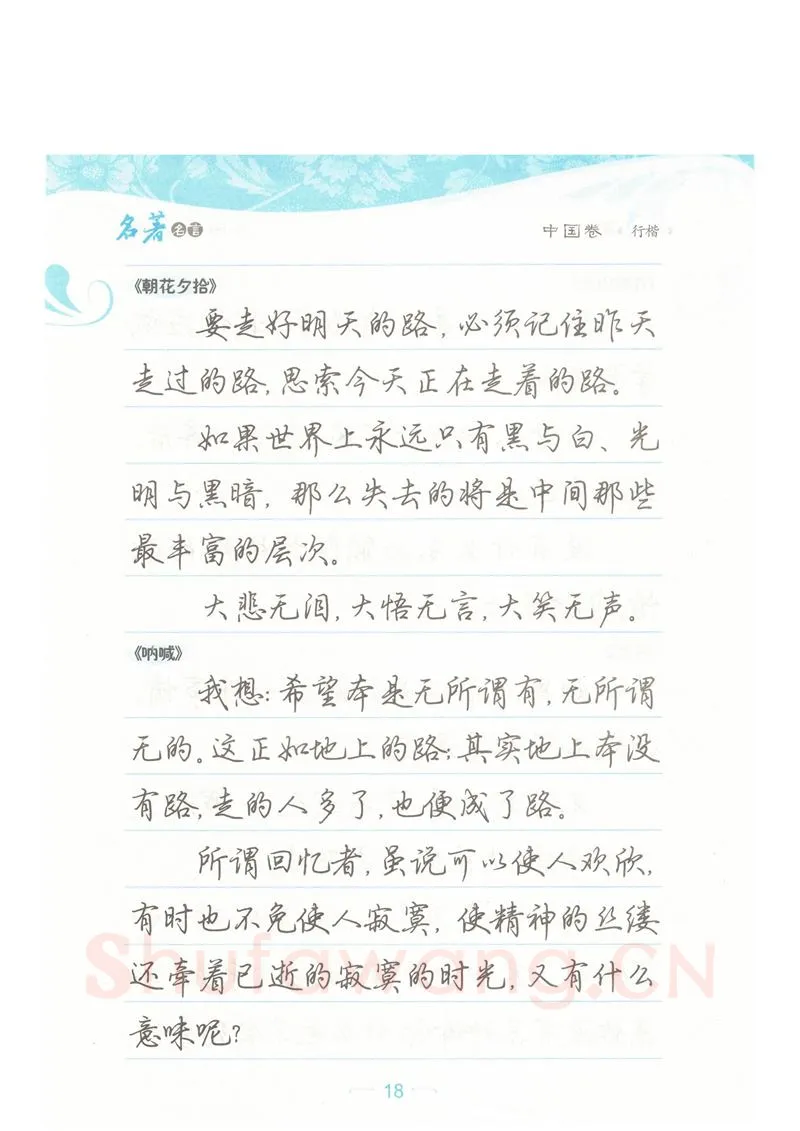 名著名言
中国卷 行楷
《朝花夕拾》
要走好明天的路,必须记住昨天
走过的路,思索今天正在走着的路。
如果世界上永远只有黑与白、光
明与黑暗,那么失去的将是中间那些
最丰富的层次。
大悲无泪,大悟无言,大笑无声。
《呐喊》
我想:希望本是无所谓有,无所谓
无的。这正如地上的路;其实地上本没
有路,走的人多了,也便成了路。
所谓回忆者,虽说可以使人欢欣,
有时也不免使人寂寞,使精神的丝缕
还牵着已逝的寂寞的时光,又有什么
意味呢?
Shufawang.CN
18